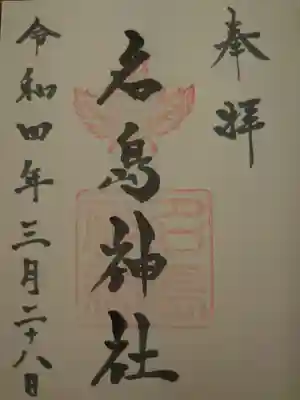 奉拝
名島神社
令和四年三月二十八日